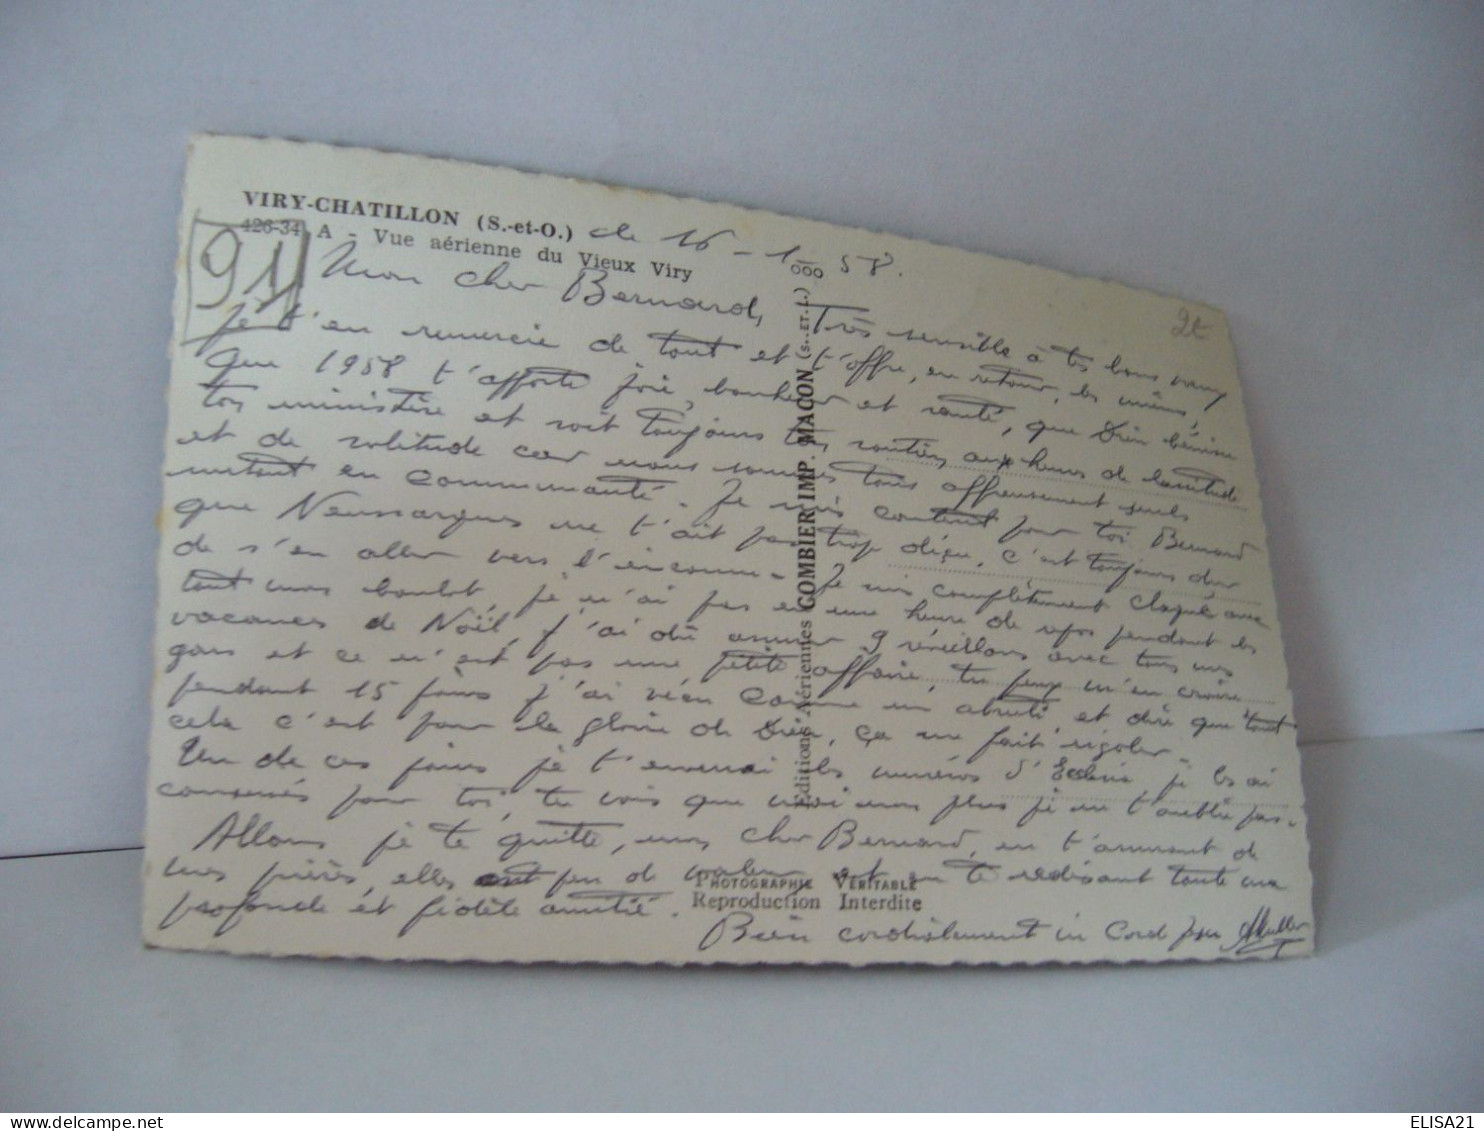 VIRY-CHATILLON (S.-et-O.)
426-34 A - Vue aérienne du Vieux Viry
91
2€
le 16 - 1 - 58.
Mon cher Bernard, Très sensible à tes bons vœux
je t'en remercie de tout et t'offre, en retour, les miens,
Que 1958 t'apporte joie, bonheur et santé, que Dieu bénisse
ton ministère et soit toujours ton soutien, aux heures de lassitude
et de solitude car nous sommes tous affreusement seuls
surtout en communauté. Je suis content pour toi Bernard
que Neussargues ne t'ait pas trop déçu, c'est toujours dur
de s'en aller vers l'inconnu. Je suis complètement claqué avec
tout mon boulot, je n'ai pas eu une heure de repos pendant les
vacances de Noël, j'ai dû assurer 9 réveillons avec tous mes
gars et ce n'est pas une petite affaire, tu peux m'en croire
pendant 15 jours j'ai vécu comme un abruti et dire que tout
cela c'est pour la gloire de Dieu, ça me fait rigoler.
Un de ces jours je t'enverrai les numéros d'Ecclesia je les ai
conservés pour toi, tu vois que moi non plus je ne t'oublie pas.
Allons je te quitte, mon cher Bernard, en t'assurant de
mes prières, elles ont peu de valeur, et en te redisant toute ma
profonde et fidèle amitié. Bien cordialement in Cord Jesu
Editions Aériennes COMBIER IMP. MACON (S.-ET-L.)
PHOTOGRAPHIE VÉRITABLE
Reproduction Interdite
ELISA21